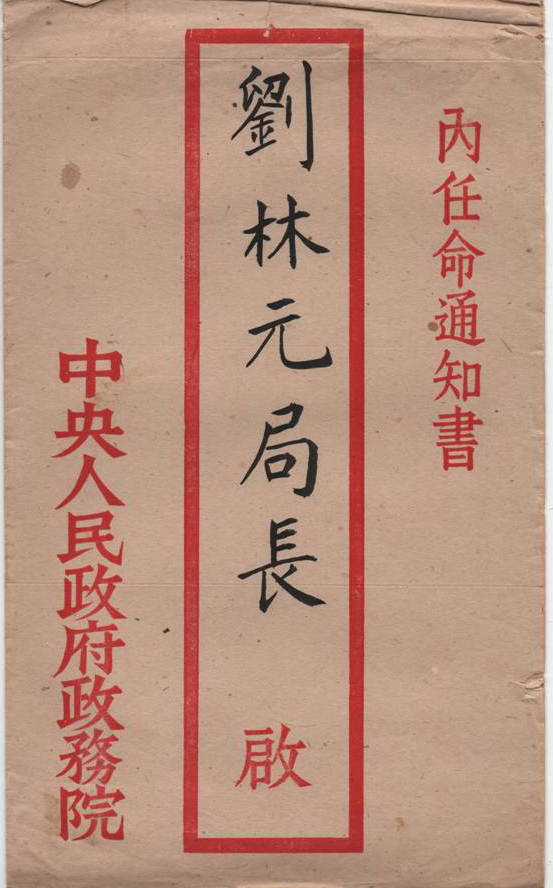 內任命通知書
劉林元局長 啟
中央人民政府政務院